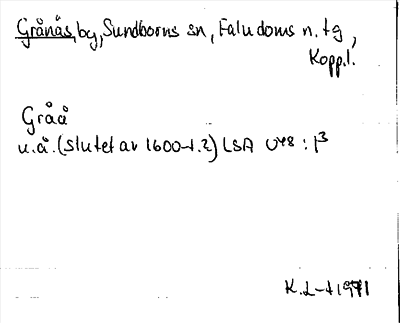 Grånäs, by, Sundborns sn, Falu doms n. tg,
Kopp.l.
Gråå
u.å. (slutet av 1600-t.?) LSA U48:1³
K.L-t 1971